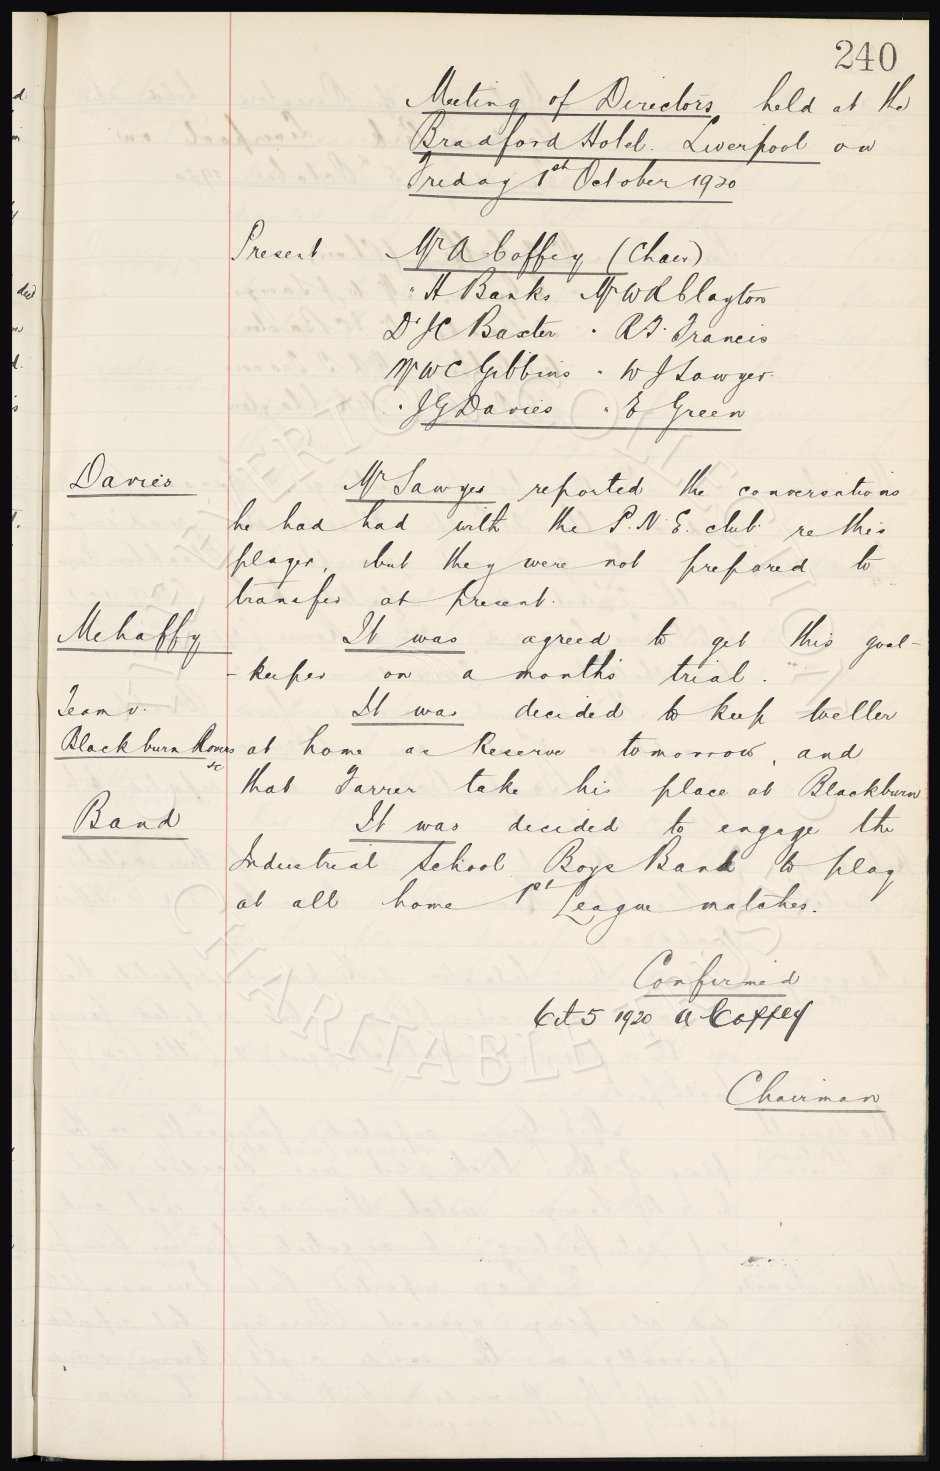 240
Meeting of Directors held at the
Bradford Hotel. Liverpool on
Friday 1st October 1920
Present Mr A Coffey (Chair)
" H Banks Mr W R Clayton
Dr J C Baxter " R T Francis
Mr W C Gibbins " W J Sawyer
" J G Davies " E Green
Davies Mr Sawyer reported the conversations
he had had with the P.N.E. club re this
player, but they were not prepared to
transfer at present.
Mehaffy It was agreed to get this goal-
-keeper on a month's trial.
Team v. It was decided to keep Weller
Blackburn Rovers at home as Reserve tomorrow, and
&c that Farrer take his place at Blackburn
Band It was decided to engage the
Industrial School Boys Band to play
at all home 1st League matches.
Confirmed
Oct 5 1920 A Coffey
Chairman
EVERTON COLLECTION
CHARITABLE TRUST